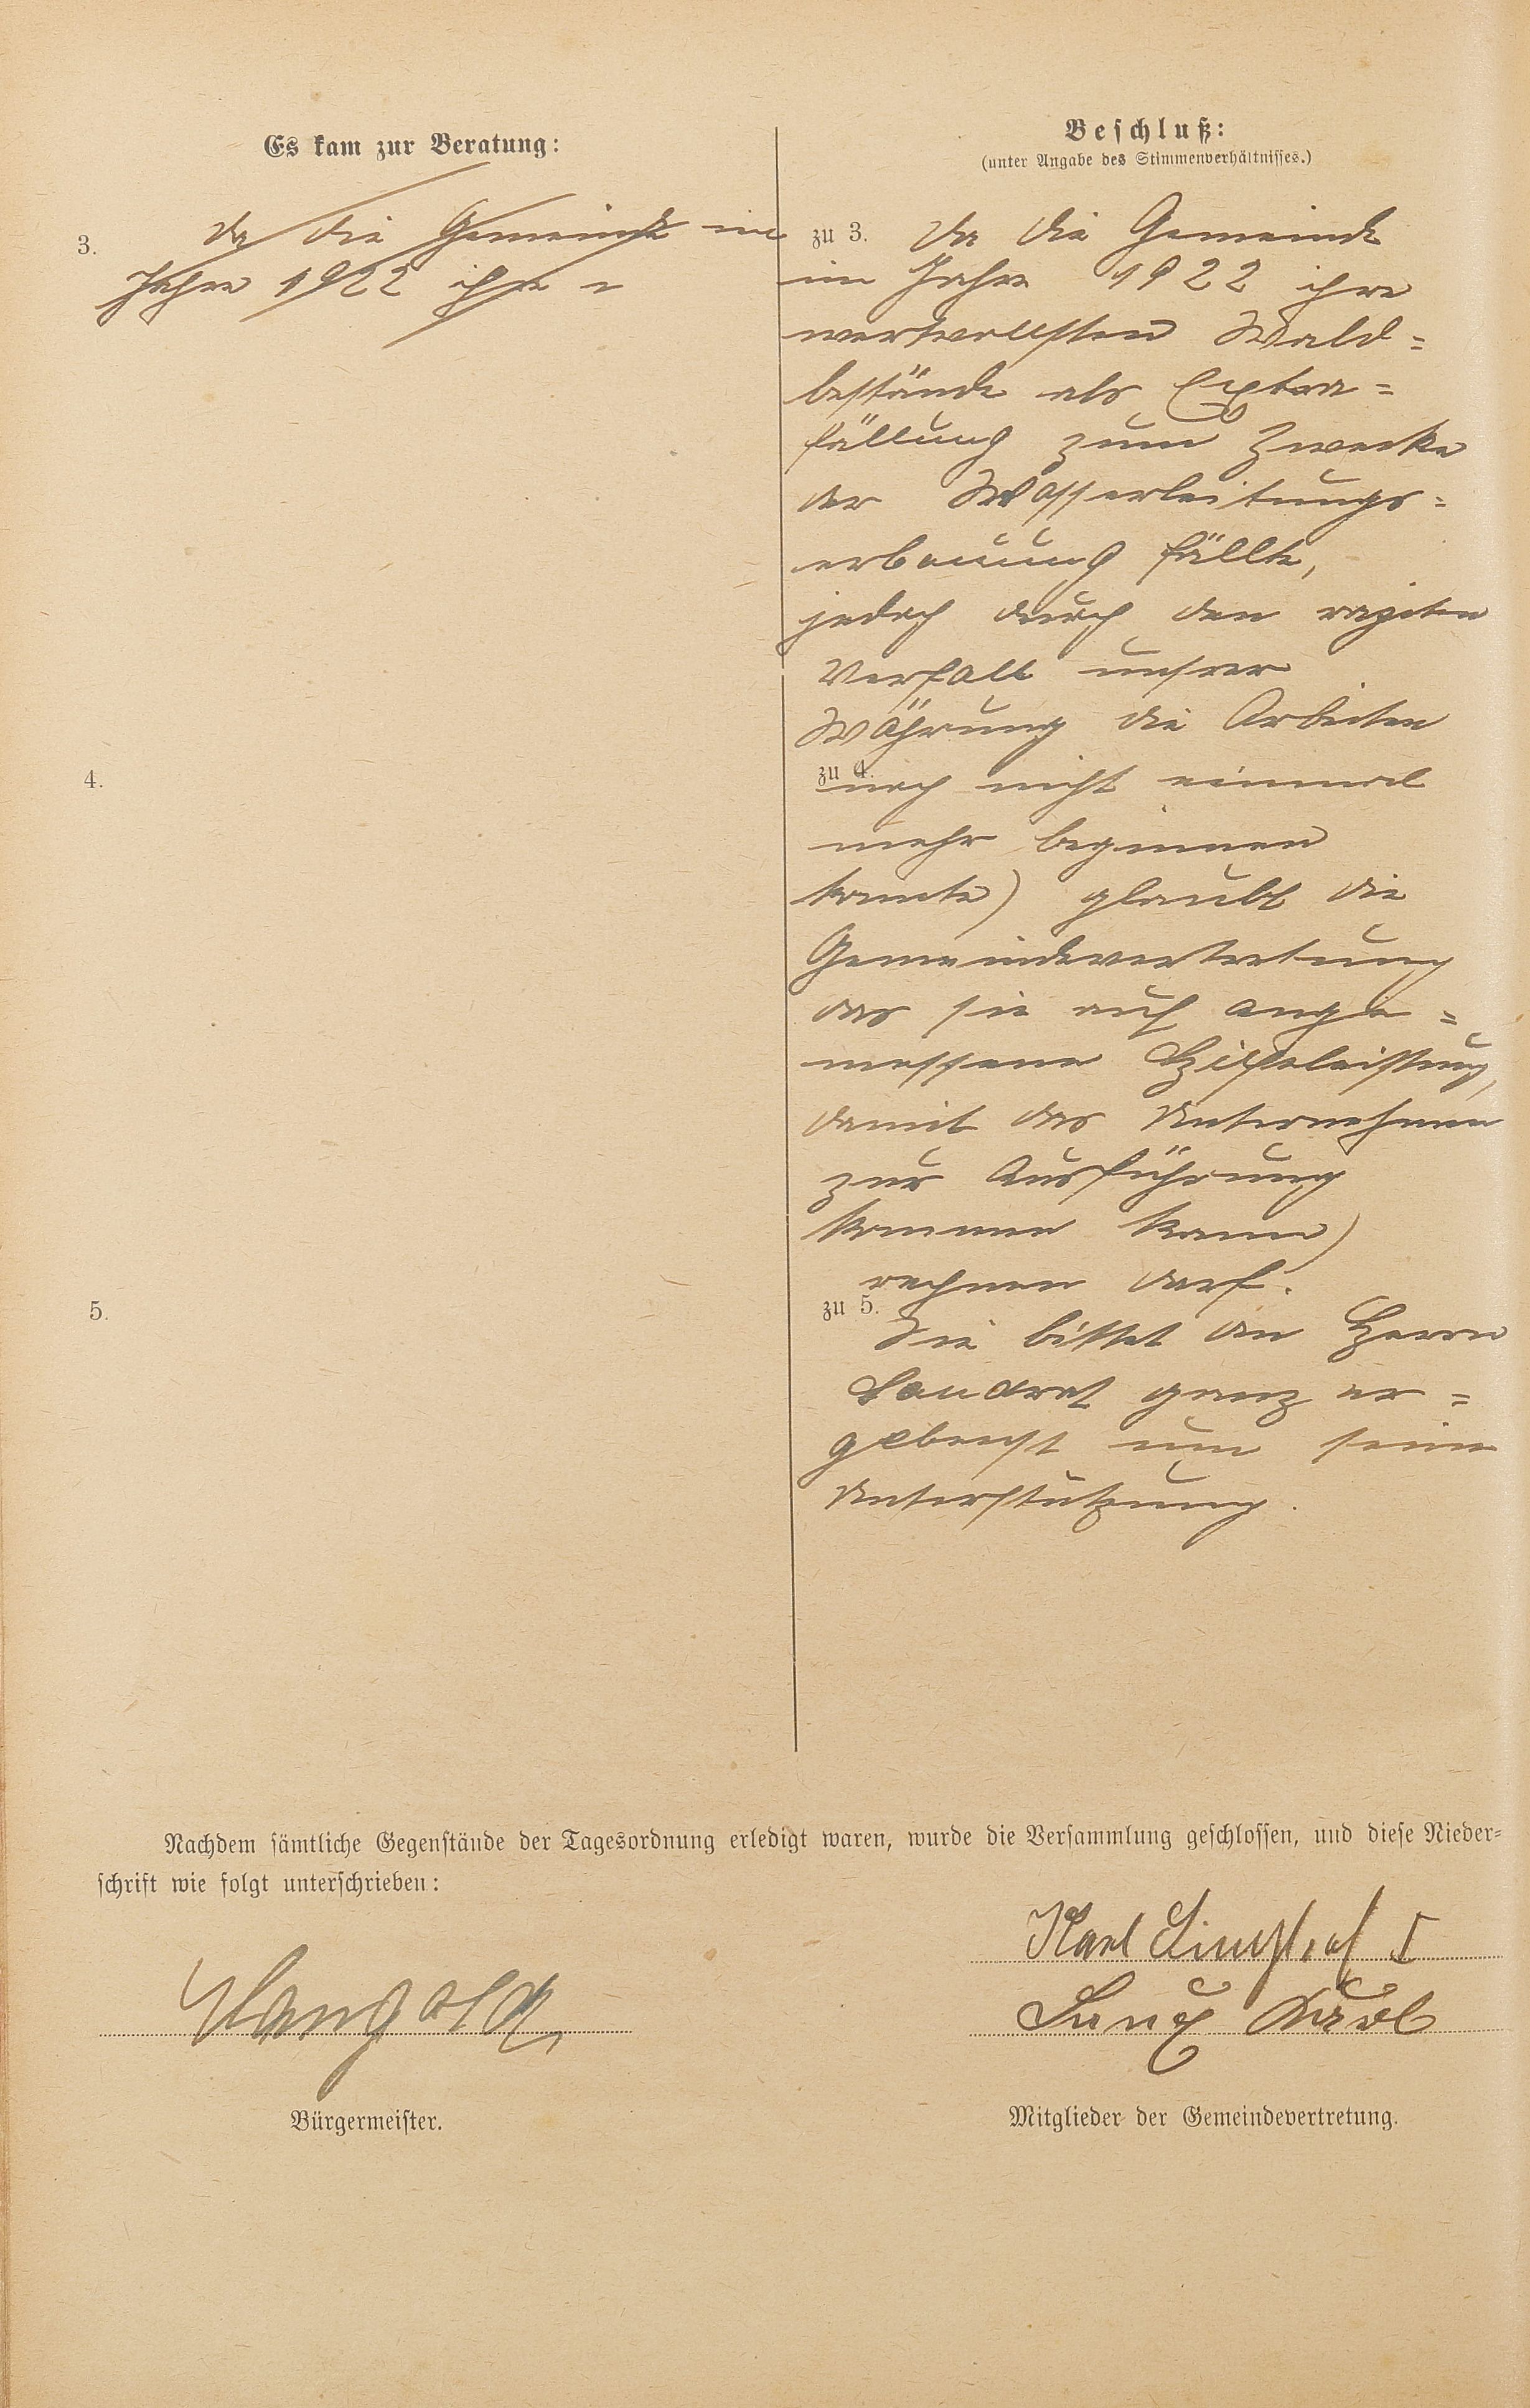 Es kam zur Beratung:
3. Da die Gemeinde im
Jahre 1922 ihre =
4.
5.
Beschluß:
(unter Angabe des Stimmenverhältnisses.)
zu 3. Da die Gemeinde
im Jahre 1922 ihre
wertvollsten Wald=
bestände als Extra=
fällung zum Zwecke
der Wasserleitungs=
erbauung fällte,
jedoch durch den rapiden
Verfall unsrer
Währung die Arbeiten
zu 4.
noch nicht einmal
mehr beginnen
konnte) glaubt die
Gemeindevertretung
das sie auf ange=
messene Hilfeleistung,
damit das Unternehmen
zur Ausführung
kommen kann)
rechnen darf.
zu 5.
Sie bittet den Herrn
Landrat ganz er=
gebenst um seine
Unterstützung.
Nachdem sämtliche Gegenstände der Tagesordnung erledigt waren, wurde die Versammlung geschlossen, und diese Nieder=
schrift wie folgt unterschrieben:
Karl I
Mangold
Karl
Bürgermeister.
Mitglieder der Gemeindevertretung.